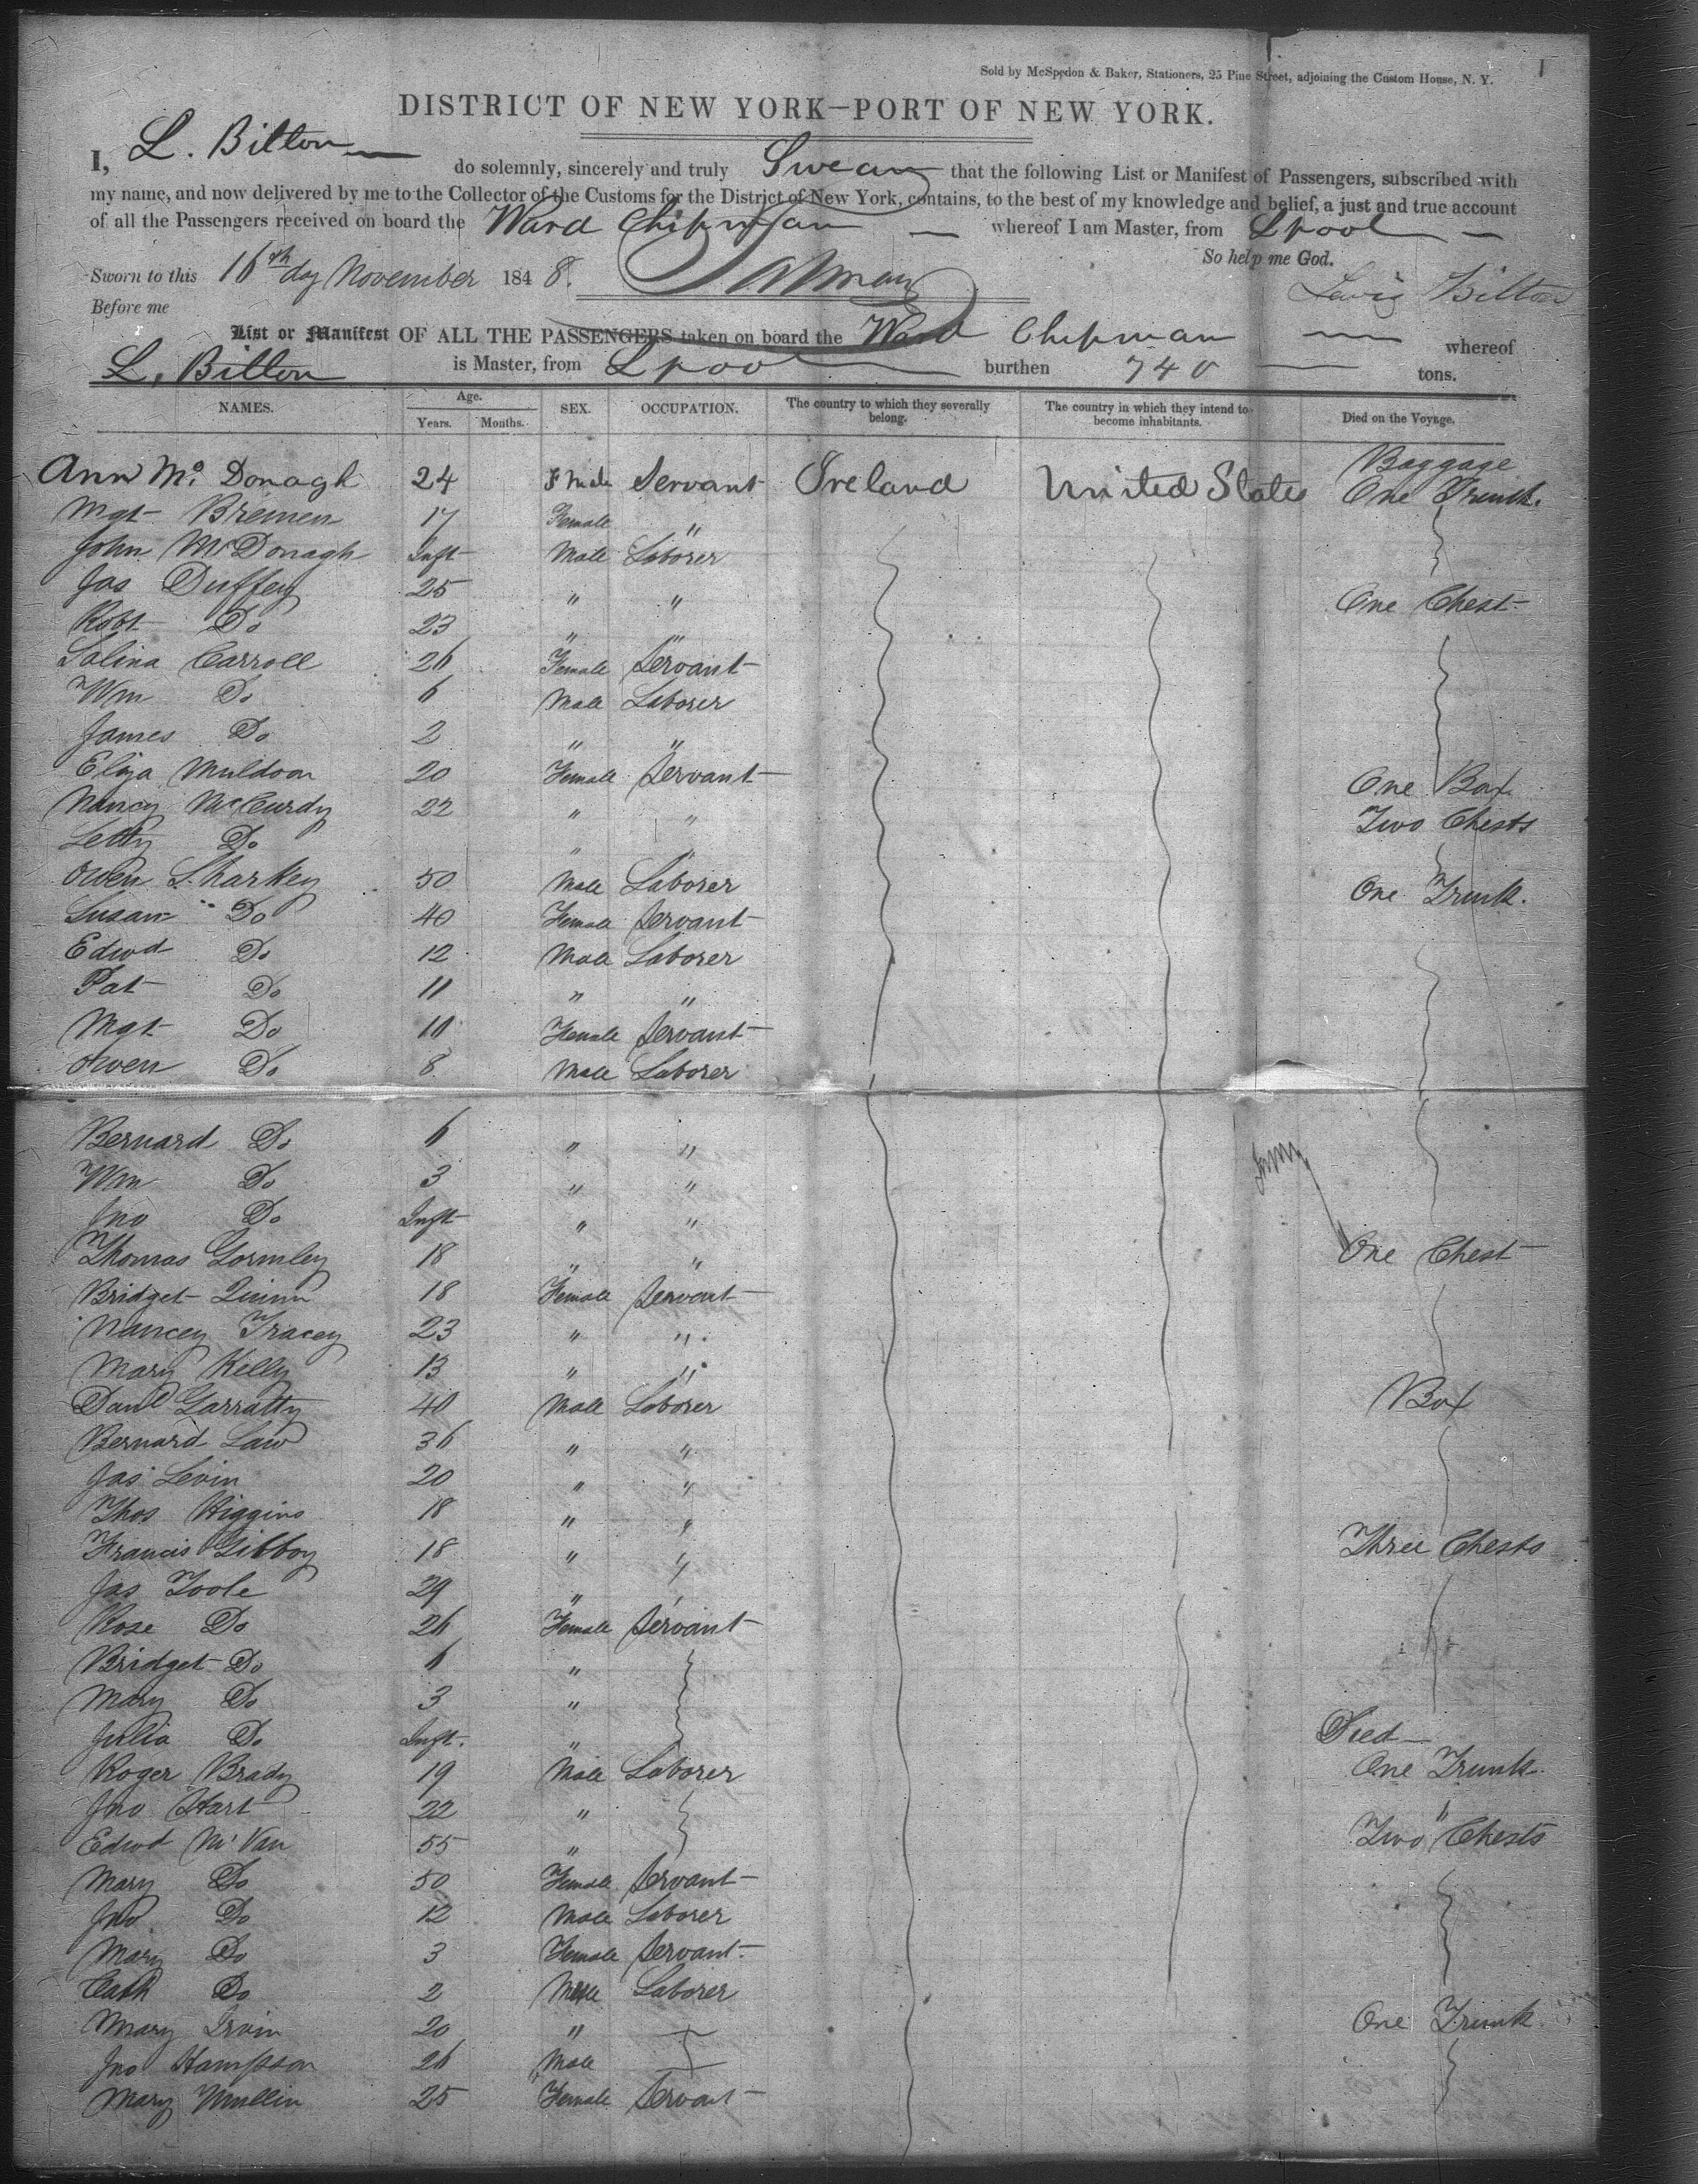 1
Sold by McSpedon & Baker, Stationers, 25 Pine Street, adjoining the Custom House, N. Y.
DISTRICT OF NEW YORK—PORT OF NEW YORK.
I, L. Bilton do solemnly, sincerely and truly Swear that the following List or Manifest of Passengers, subscribed with
my name, and now delivered by me to the Collector of the Customs for the District of New York, contains, to the best of my knowledge and belief, a just and true account
of all the Passengers received on board the Ward Chipman — whereof I am Master, from Lpool —
So help me God.
Sworn to this 16th day November 1848. Lewis Bilton
Before me
List or Manifest OF ALL THE PASSENGERS taken on board the Ward Chipman — whereof
L. Bilton is Master, from Lpool burthen 740 tons.
NAMES. Age. Years. Months. SEX. OCCUPATION. The country to which they severally belong. The country in which they intend to become inhabitants. Died on the Voyage.
Baggage
Ann Mc. Donagh 24 Servant Ireland United States One Trunk.
Mgt Bremen 17 Female "
John McDonagh Inft Male Laborer
Jas Duffey 25 " " One Chest
Robt Do 23 " "
Salina Carroll 26 Female Servant
Wm Do 6 Male Laborer
James Do 2 " "
Eliza Muldoon 20 Female Servant One Box
Nancy McCurdy 22 " " Two Chests
Letty Do " "
Owen Sharkey 50 Male Laborer One Trunk.
Susan Do 40 Female Servant
Edwd Do 12 Male Laborer
Pat Do 11 " "
Mgt Do 10 Female Servant
Owen Do 8 Male Laborer
Bernard Do 6 " "
Wm Do 3 " "
Jno Do Inft " "
Thomas Gormley 18 " " One Chest
Bridget Quinn 18 Female Servant
Nancey Tracey 23 " "
Mary Kelly 13 " "
Danl Garratty 40 Male Laborer Box
Bernard Law 36 " "
Jas Levin 20 " "
Thos Higgins 18 " "
Francis Gibboy 18 " " Three Chests
Jas Toole 29 " "
Rose Do 26 Female Servant
Bridget Do 6 "
Mary Do 3 "
Julia Do Inft. " Died —
Roger Brady 19 Male Laborer One Trunk
Jno Hart 22 " "
Edwd McVan 55 " Two Chests
Mary Do 50 Female Servant
Jno Do 12 Male Laborer
Mary Do 3 Female Servant
Cath Do 2 Male Laborer
Mary Irvin 20 " One Trunk
Jno Hampson 26 Male
Mary Mullin 25 Female Servant